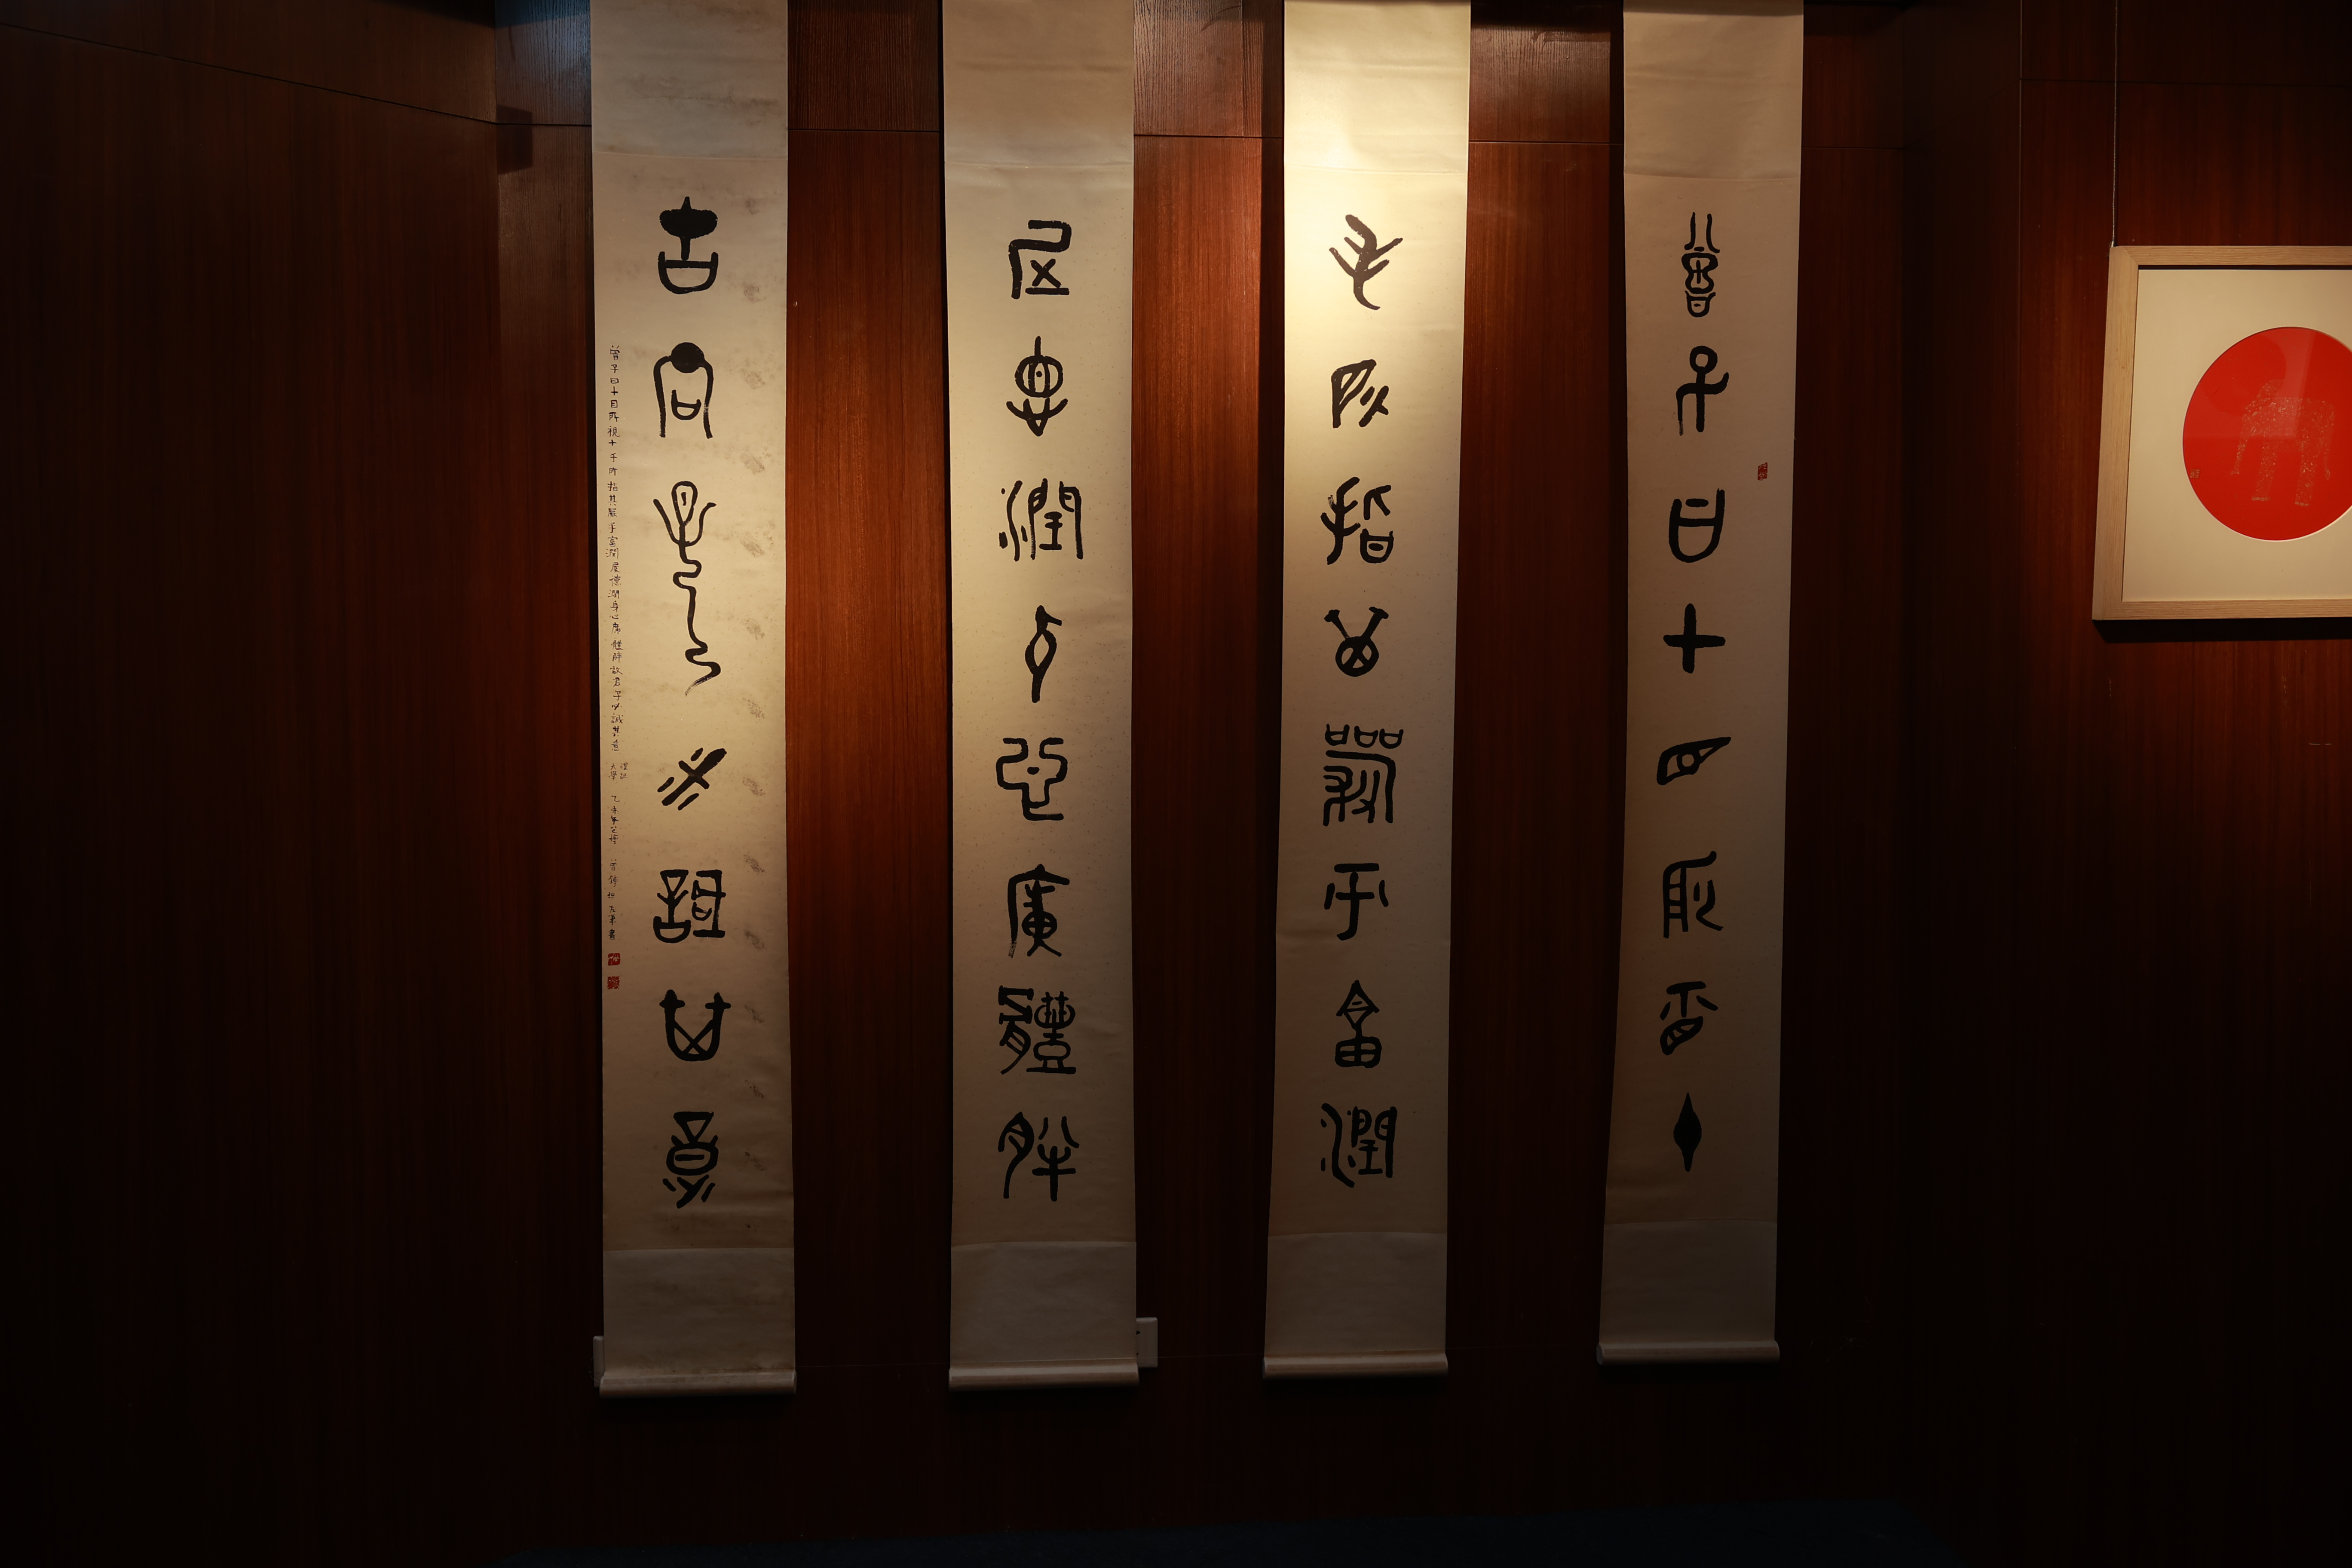 曾子曰十目所視十
手所指其嚴乎富潤
屋德潤身心廣體胖
古君子必誠其意
曾子曰十目所視十手所指其嚴乎富潤屋德潤身心廣體胖故君子必誠其意 禮記大學